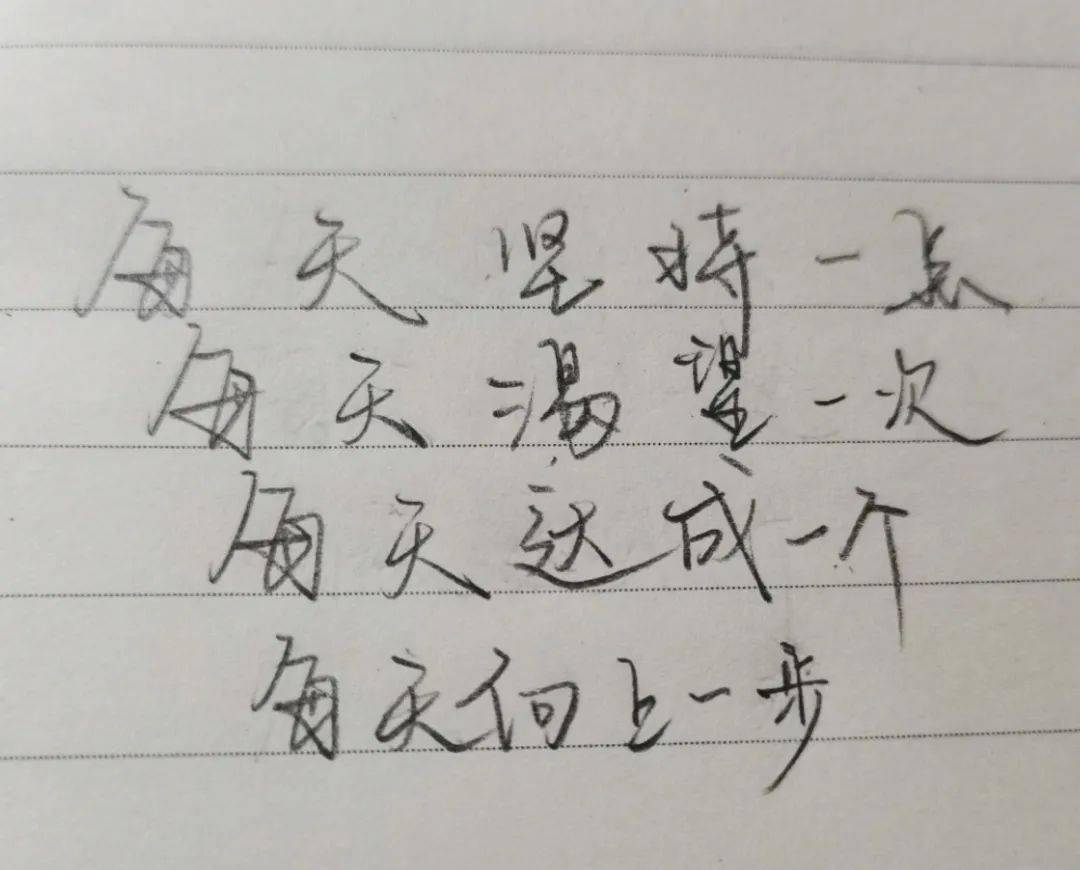 每天坚持一点
每天渴望一次
每天达成一个
每天向上一步